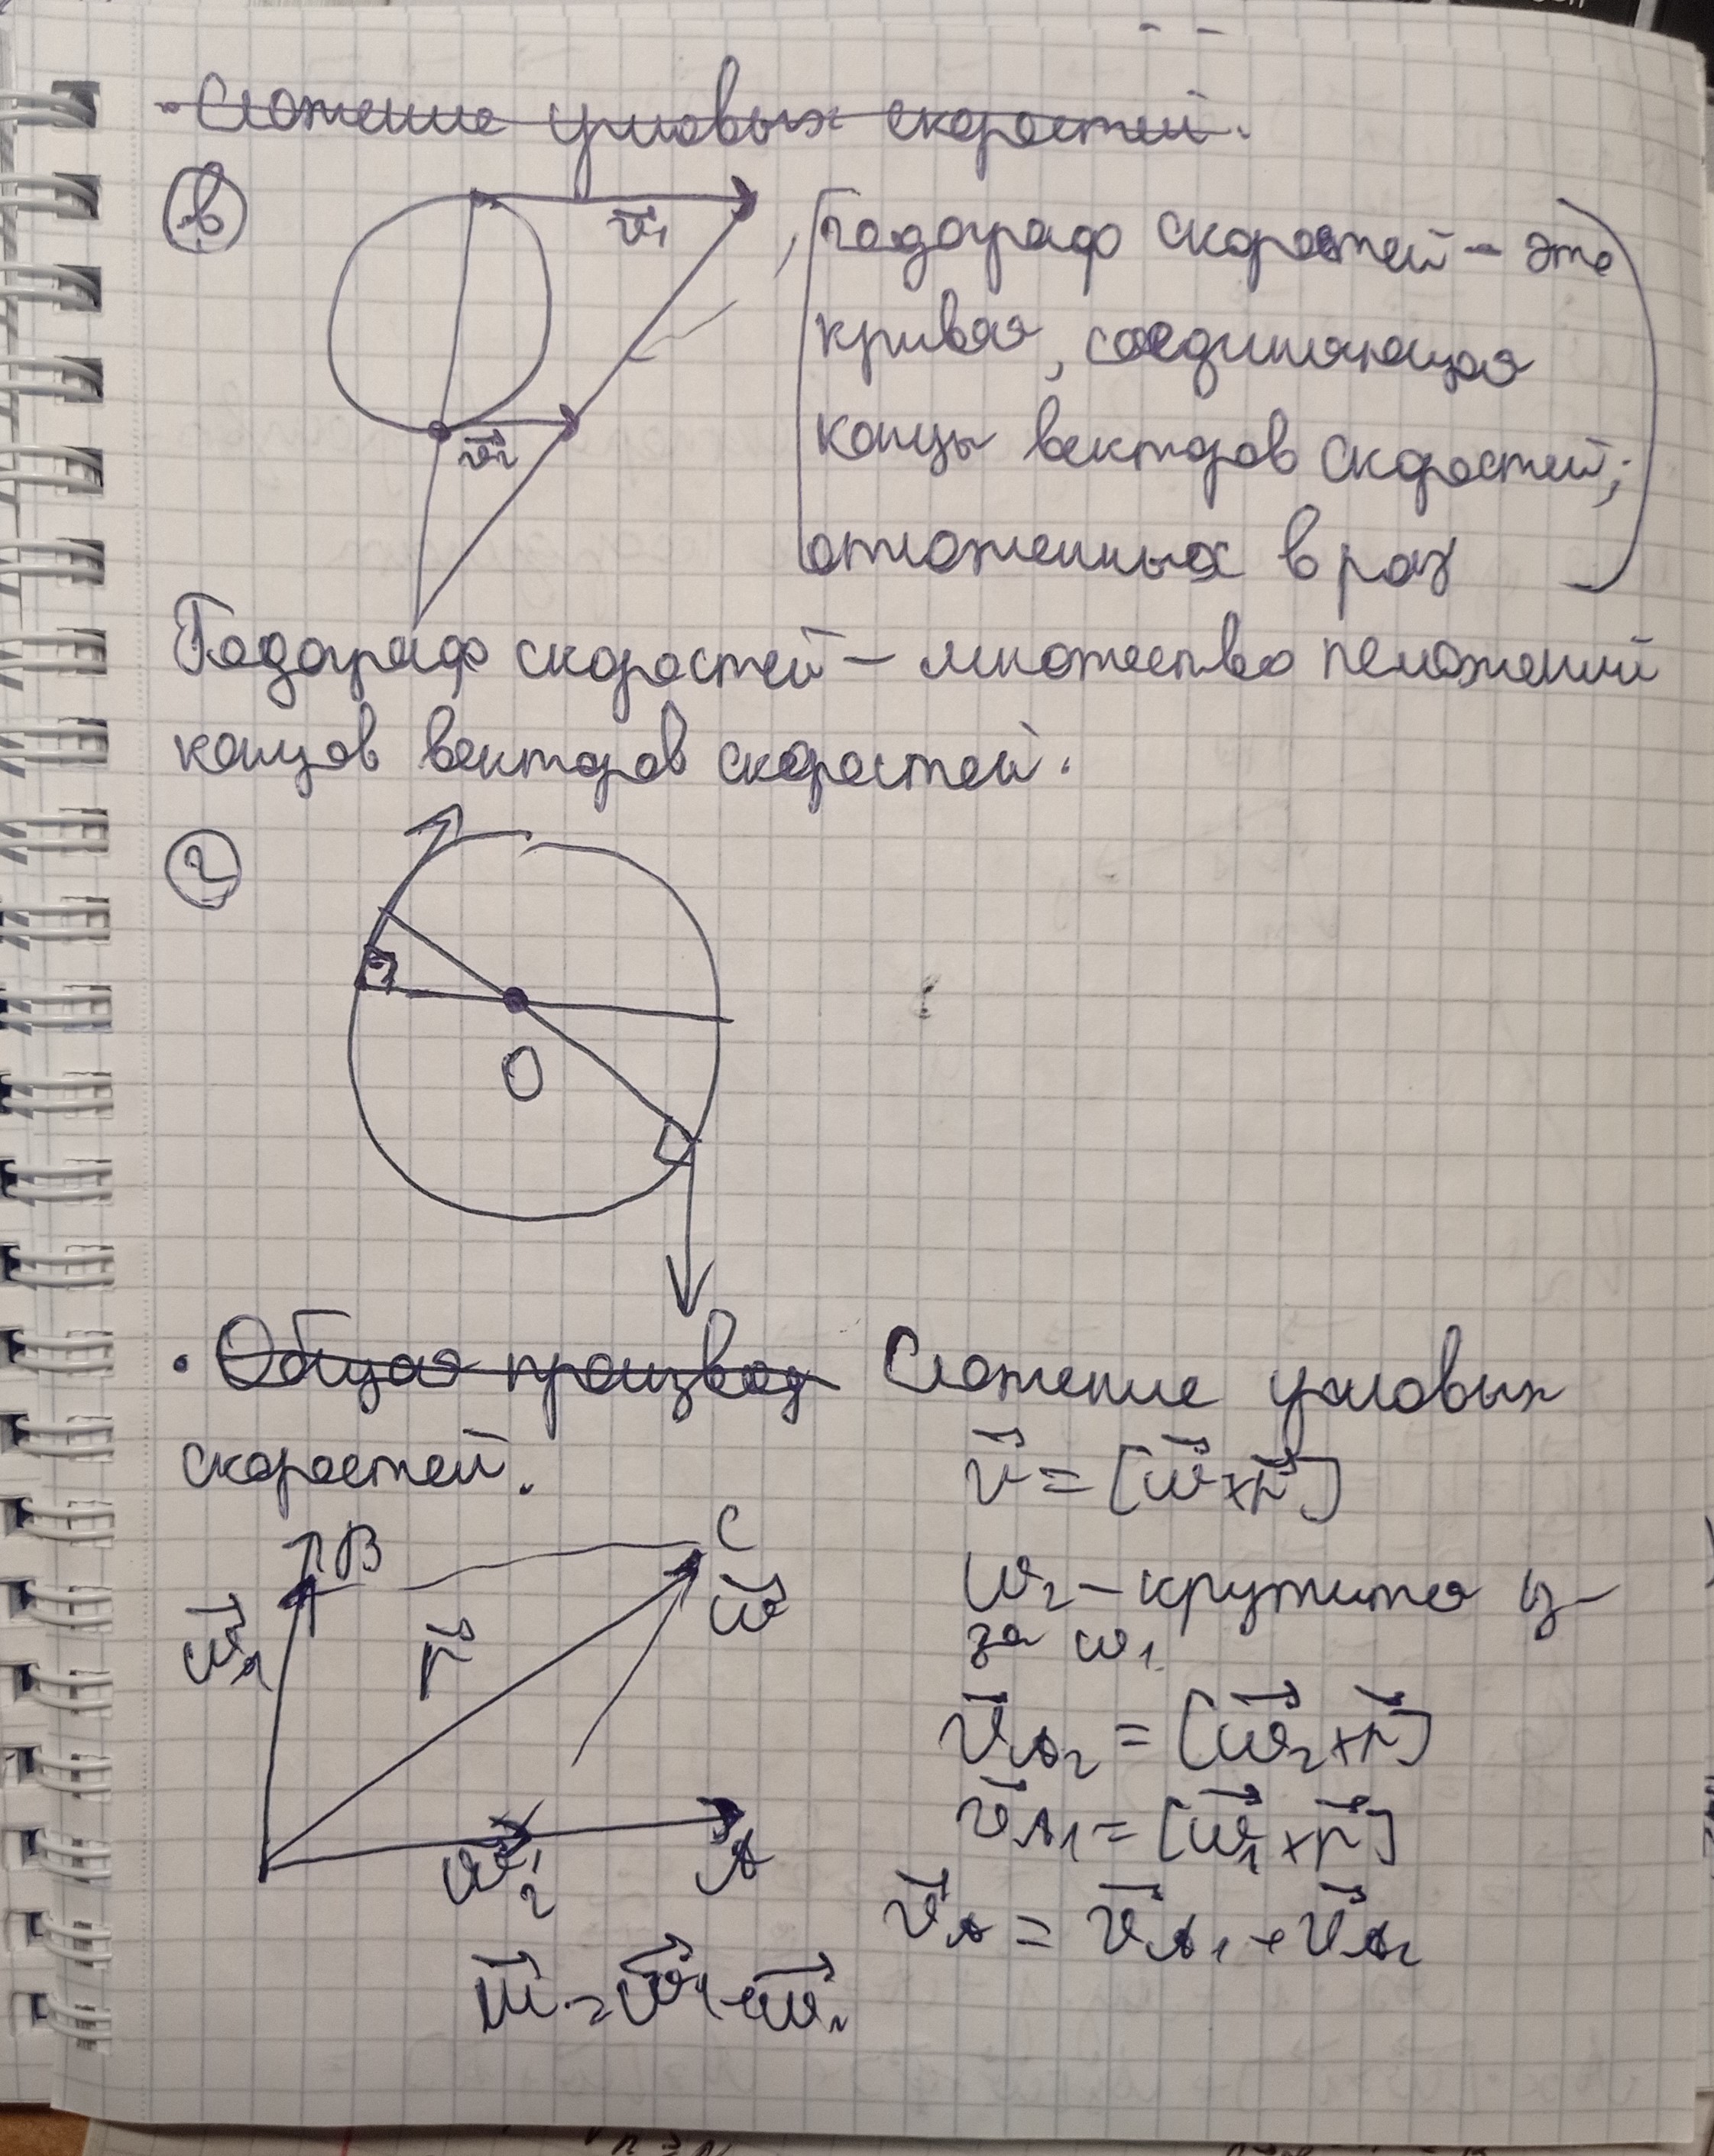 · Сложение угловых скоростей.
в
v⃗₁
v⃗₂
годограф скоростей – это
кривая, соединяющая
концы векторов скоростей,
отложенных в раз
Годограф скоростей – множество положений
концов векторов скоростей.
г
O
· Общая производ Сложение угловых
скоростей.
v⃗ = [ω⃗×r⃗]
B
C
ω⃗₁
r⃗
ω⃗
ω₂ – крутится из-
за ω₁
v⃗A₂ = [ω⃗₂×r⃗]
v⃗A₁ = [ω⃗₁×r⃗]
ω⃗₂
A
v⃗A = v⃗A₁ + v⃗A₂
ω⃗ = ω⃗₁ + ω⃗₂